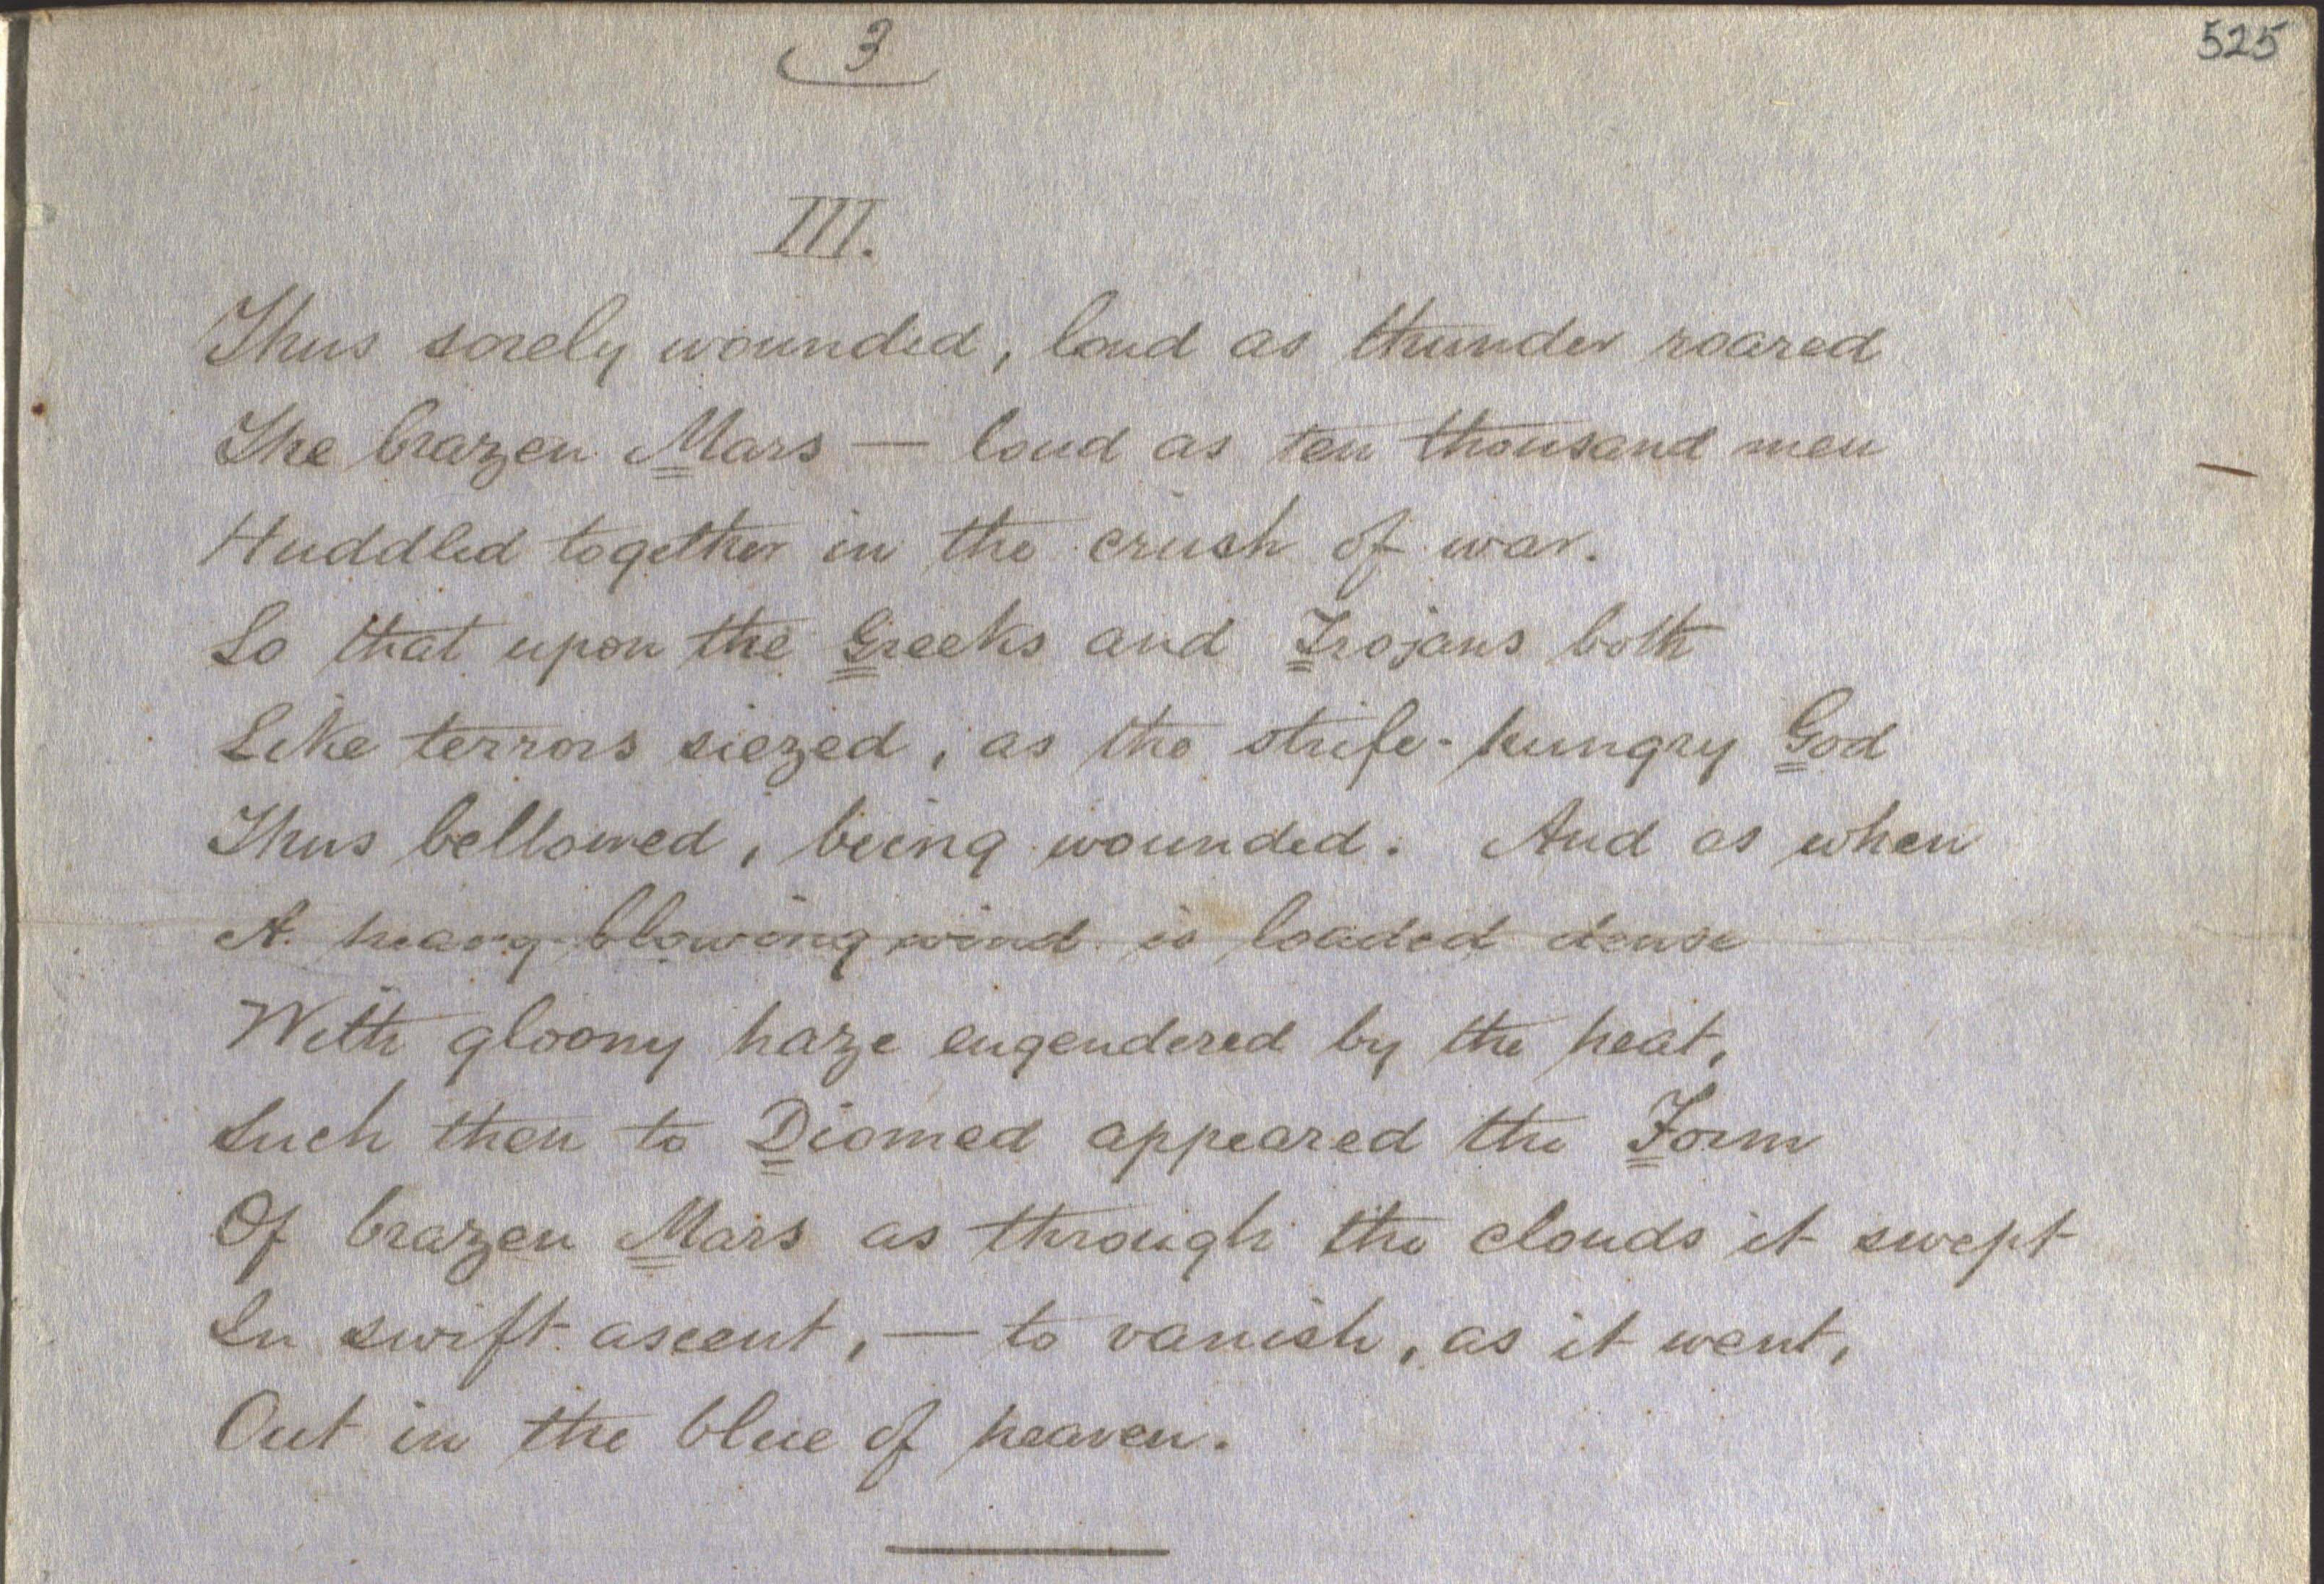 3
525
III.
Thus sorely wounded, loud as thunder roared
The brazen Mars — loud as ten thousand men
Huddled together in the crush of war.
So that upon the Greeks and Trojans both
Like terrors siezed, as the strife-hungry God
Thus bellowed, being wounded. And as when
A heavy-blowing wind is loaded dense
With gloomy haze engendered by the heat,
Such then to Diomed appeared the Form
Of brazen Mars as through the clouds it swept
In swift ascent, — to vanish, as it went,
Out in the blue of heaven.